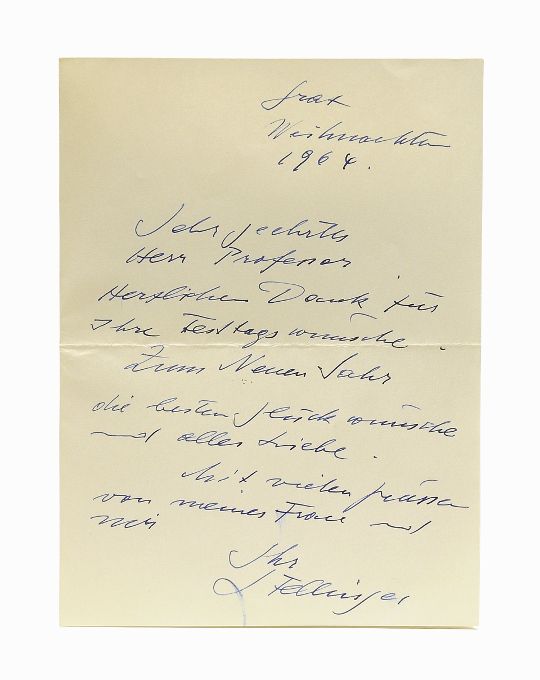 Graz
Weihnachten
1964.
Sehr geehrter
Herr Professor,
Herzlichen Dank für
Ihre Festtagswünsche.
Zum Neuen Jahr
die besten Glückwünsche
und alles Liebe.
Mit vielen Grüssen
von meiner Frau und
mir
Ihr
Fellinger